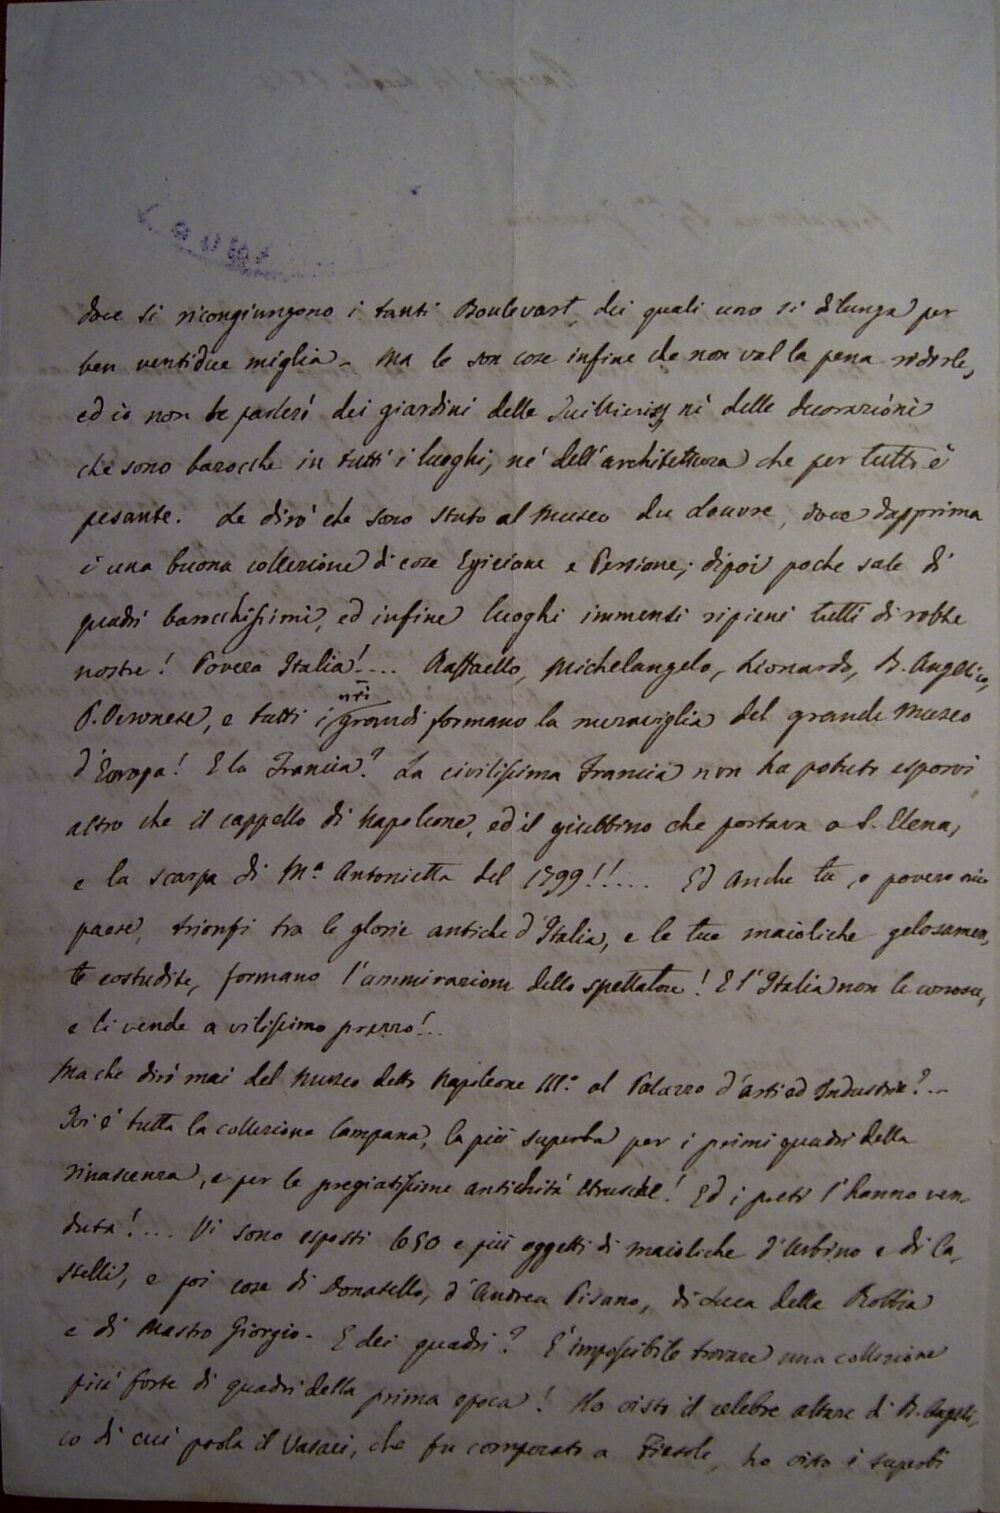 dove si ricongiungono i tanti Boulevart, dei quali uno si dilunga per
ben ventidue miglia - Ma le son cose infine che non val la pena ridirle,
ed io non le parlerò dei giardini delle nè delle decorazioni
che sono barocche in tutti i luoghi, nè dell'architettura che per tutto è
pesante. Le dirò che sono stato al Museo du Louvre, dove dapprima
è una buona collezione di cose Egiziane e Persiane; dipoi poche sale di
quadri barocchissimi, ed infine luoghi immensi ripieni tutti di robbe
nostre! Povera Italia!.... Raffaello, Michelangelo, Lionardo, B. Angelico,
P. Veronese, e tutti i nri grandi formano la meraviglia del grande Museo
d'Europa! E la Francia? La civilissima Francia non ha potuto esporvi
altro che il cappello di Napoleone, ed il giubbino che portava a S. Elena,
e la scarpa di Mª Antonietta del 1799!!.... Ed anche tu, o povero mio
paese, trionfi tra le glorie antiche d'Italia, e le tue maioliche gelosamen,
te costudite, formano l'ammirazione dello spettatore! E l'Italia non le conosce,
e li vende a vilissimo prezzo!..
Ma che dirò mai del Museo detto Napoleone IIIº al Palazzo d'arti ed Industrie?..
Ivi è tutta la collezione Campana, la più superba per i primi quadri della
rinascenza, e per le pregiatissime antichità Etrusche! Ed i preti l'hanno ven,
duta!.... Vi sono esposti 650 e più oggetti di maioliche d'Urbino e di Ca,
stelli, e poi cose di Donatello, d'Andrea Pisano, di Luca della Robbia
e di Mastro Giorgio - E dei quadri? E' impossibile trovare una collezione
più forte di quadri della prima epoca! Ho visto il celebre altare di B. Angeli,
co di cui parla il Vasari, che fu comperato a Fiesole, ho visto i superbi